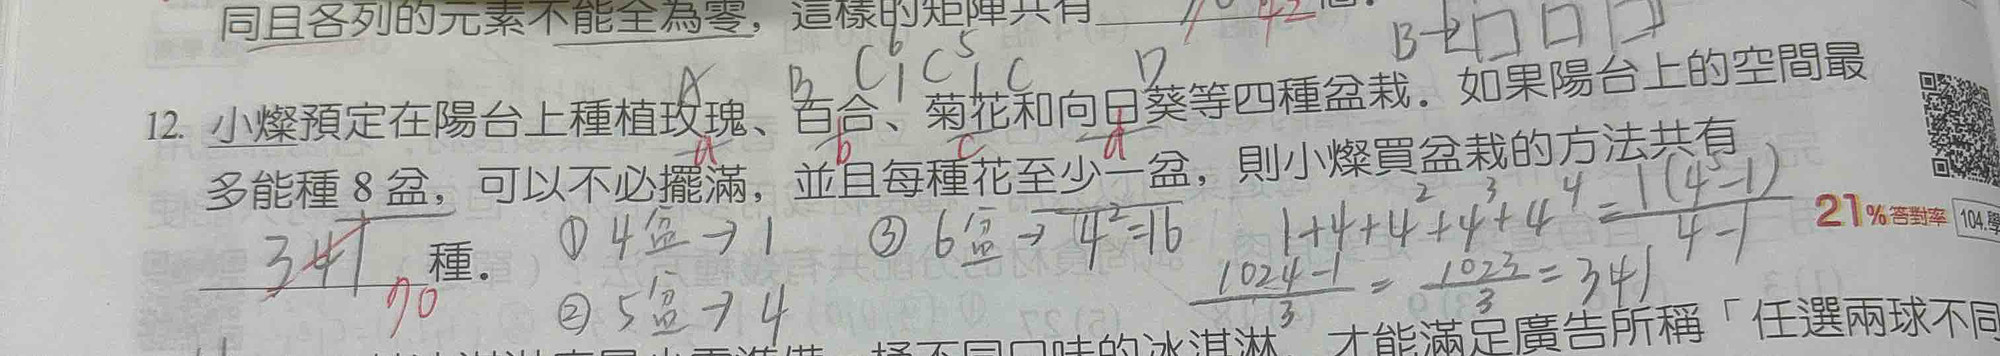 同且各列的元素不能全為零，這樣的矩陣共有 42 個.
B→□□□
A B C₁⁶C₁⁵ C D
12. 小燦預定在陽台上種植玫瑰、百合、菊花和向日葵等四種盆栽．如果陽台上的空間最
a b c d
多能種8盆，可以不必擺滿，並且每種花至少一盆，則小燦買盆栽的方法共有
341 種． ① 4盆→1 ③ 6盆→4²=16 1+4+4²+4³+4⁴=1(4⁵-1)/4-1 21%答對率 104.學
70 ② 5盆→4 1024-1/3 = 1023/3 = 341
不同口味的冰淇淋，才能滿足廣告所稱「任選兩球不同